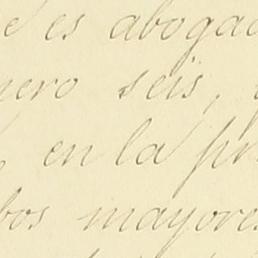 e es abogad
nero seis,
en la pr
bos mayores